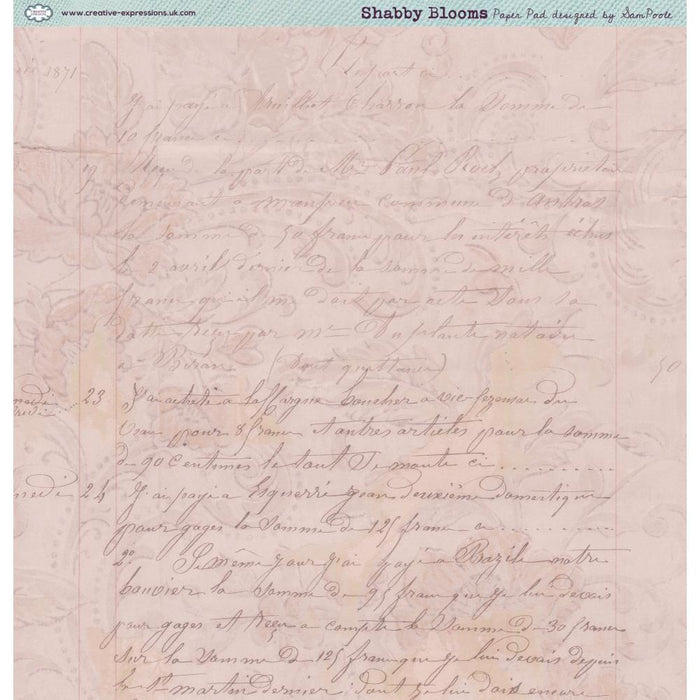 www.creative-expressions.uk.com
Shabby Blooms Paper Pad designed by Sam Poole
1871
J'ai payé a Charron la Somme de
10 francs
19 Reçu de la part de Mr Paul propriétaire
demeurant a commune d'
la Somme de 50 francs pour les intérêts échus
le 2 avril dernier de la somme de mille
francs qu'il me doit par acte sous sa
datte Reçu par me Duplante notaire
a (Dont quittance)
50
23 J'ai acheté a Laffargue boucher a vic-fezensac du
Veau pour 8 francs et autres articles pour la somme
de 90 Centimes le tout Se monte ci
24 J'ai payé a Esquerré jean deuxième domestique
pour gages la Somme de 125 francs
2º Le même jour j'ai payé a Bazile notre
bouvier la Somme de 95 francs que je lui devais
pour gages et Reçu a compte la Somme de 30 francs
Sur la Somme de 125 francs que je lui Devais depuis
la St martin dernier; Dont je lui dois encore